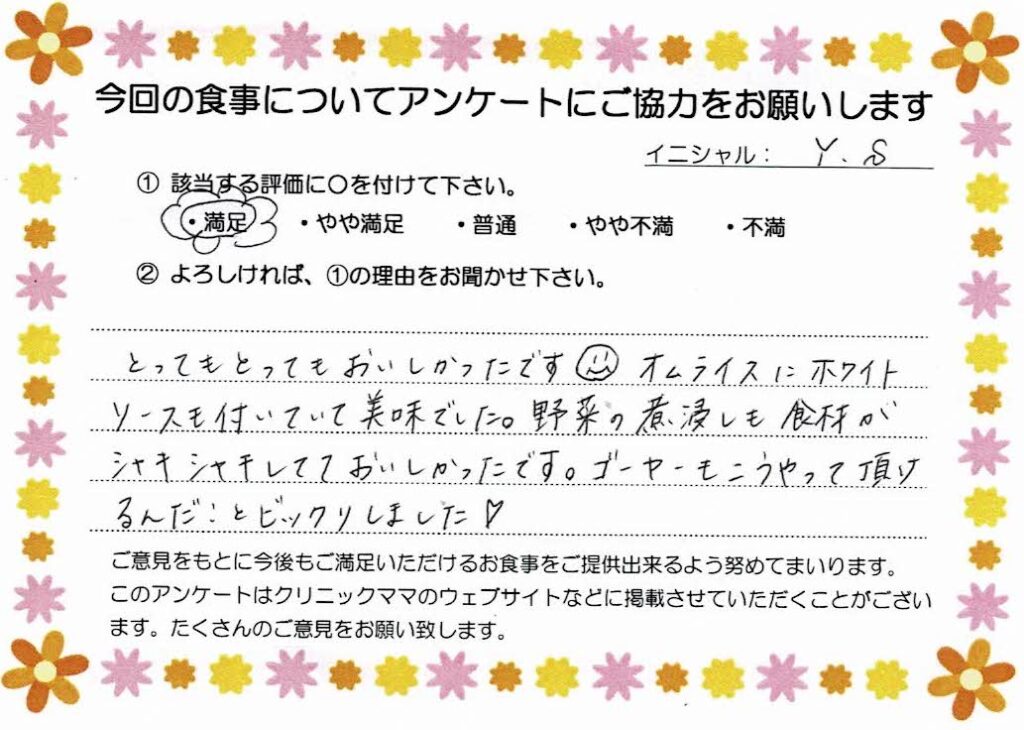 今回の食事についてアンケートにご協力をお願いします
イニシャル： Y.S
① 該当する評価に○を付けて下さい。
・満足 ・やや満足 ・普通 ・やや不満 ・不満
② よろしければ、①の理由をお聞かせ下さい。
とってもとってもおいしかったです オムライスにホワイト
ソースも付いていて美味でした。野菜の煮浸しも食材が
シャキシャキしてておいしかったです。ゴーヤーもこうやって頂け
るんだ！とビックリしました♡
ご意見をもとに今後もご満足いただけるお食事をご提供出来るよう努めてまいります。
このアンケートはクリニックママのウェブサイトなどに掲載させていただくことがござい
ます。たくさんのご意見をお願い致します。